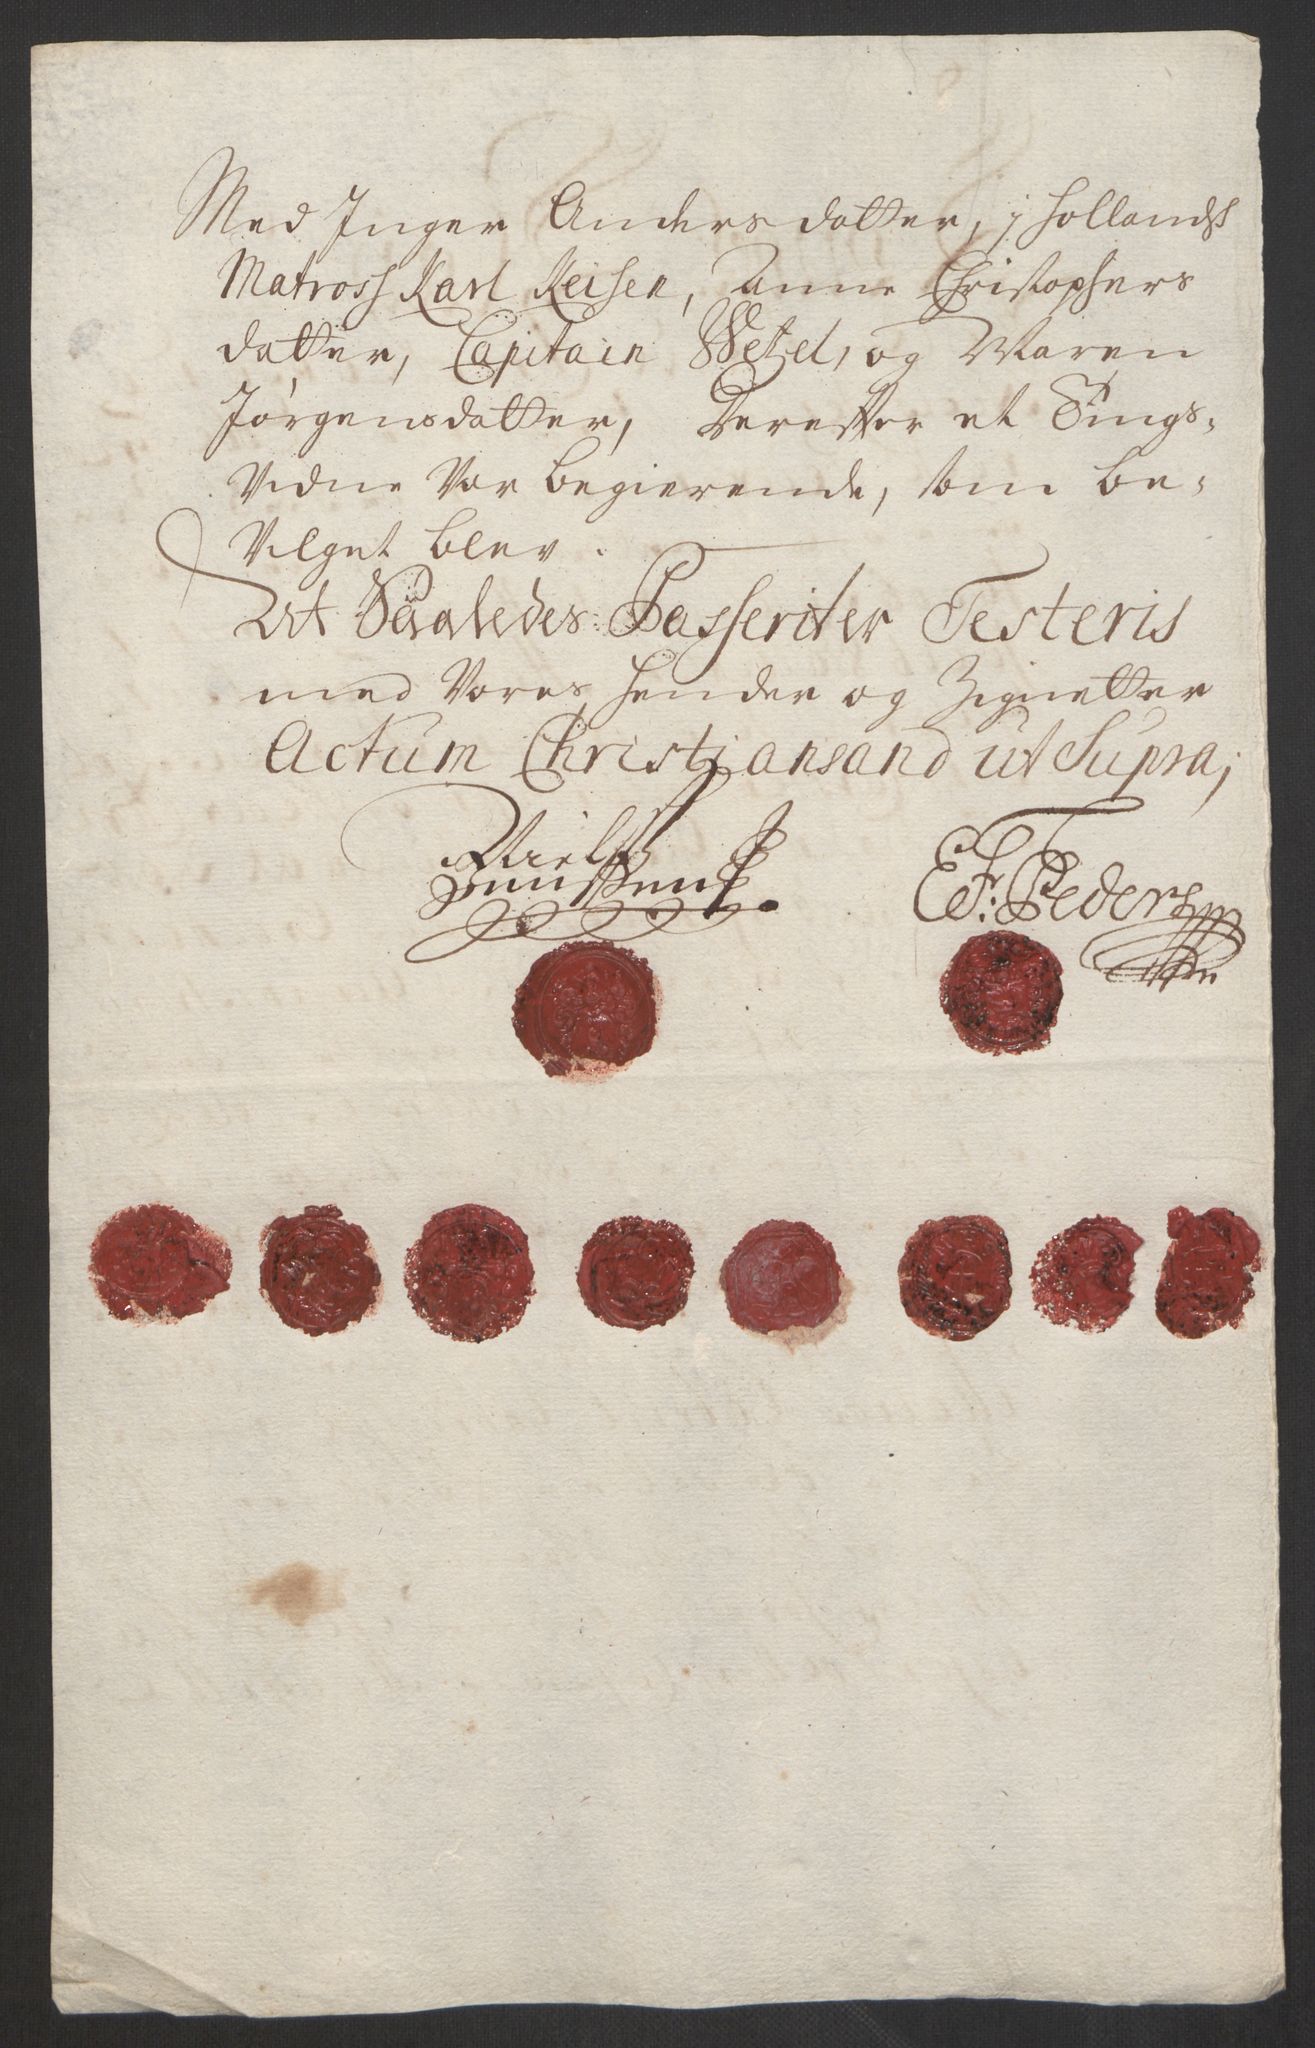 Med Inger Andersdatter, j hollandsk
Matross Karl Keisen, Anne Christophers
datter, Capitain Wetzel, og Maren
Jørgensdatter, Derefter et Tings-
Vidne Var begierende, som be-
Vilget blev.
At Saaledes Passeriter Testeris
med Vores hender og Zignetter
Actum Christiansand ut Supra;
Nielss
E. F. Peders